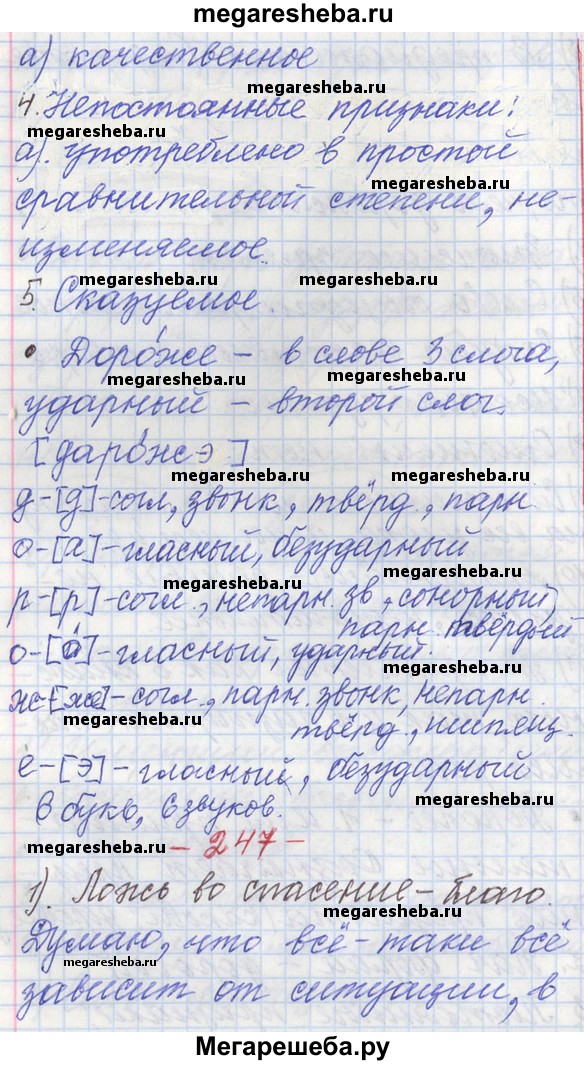 megaresheba.ru
а) качественное
megaresheba.ru
megaresheba.ru
4. Непостоянные признаки:
а). употреблено в простой
megaresheba.ru
сравнительной степени, не-
изменяемое.
megaresheba.ru
megaresheba.ru
5. Сказуемое.
megaresheba.ru
• Доро́же – в слове 3 слога,
megaresheba.ru
ударный – второй слог.
megaresheba.ru
[даро́жэ]
megaresheba.ru
д-[д]-согл, звонк, твёрд., парн.
megaresheba.ru
о-[а]-гласный, безударный
megaresheba.ru
р-[р]-согл., непарн. зв, сонорный,
парн. твёрдый
о-[о́]-гласный, ударный.
megaresheba.ru
ж-[ж]-согл., парн. звонк, непарн.
megaresheba.ru
твёрд., шипящ.
е-[э]-гласный, безударный
megaresheba.ru
6 букв, 6 звуков.
megaresheba.ru
– 247 –
1). Ложь во спасение – благо.
megaresheba.ru
Думаю, что всё-таки всё
megaresheba.ru
зависит от ситуации, в
Мегарешеба.ру